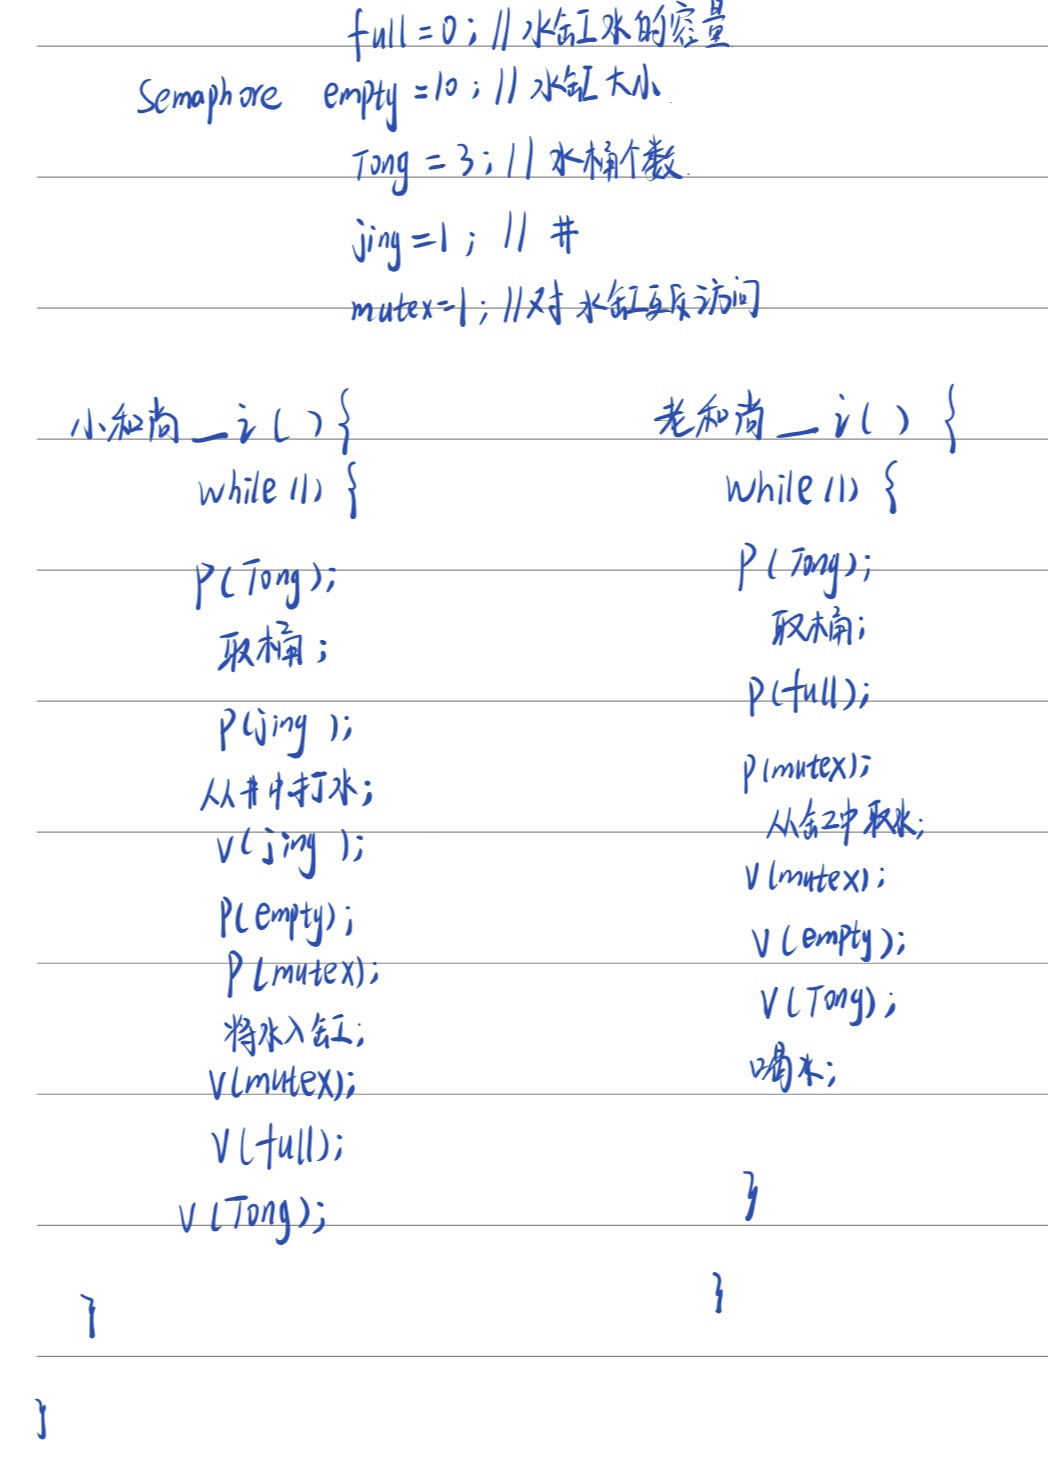 full = 0; // 水缸水的容量
Semaphore empty = 10; // 水缸大小
Tong = 3; // 水桶个数
jing = 1; // 井
mutex = 1; // 对水缸互斥访问
小和尚_i() {
while(1) {
P(Tong);
取桶;
P(jing);
从井中打水;
V(jing);
P(empty);
P(mutex);
将水入缸;
V(mutex);
V(full);
V(Tong);
}
}
老和尚_i() {
while(1) {
P(Tong);
取桶;
P(full);
P(mutex);
从缸中取水;
V(mutex);
V(empty);
V(Tong);
喝水;
}
}